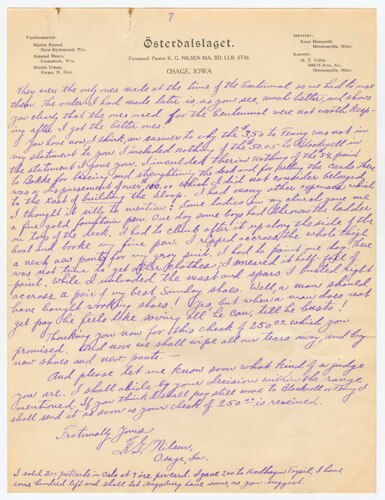 7
Viceformand:
Martin Strand
New Richmond, Wis.
Amund Moen,
Comstock, Wis.
Martin Ulnes,
Fargo, N. Dak.
Österdalslaget.
Formand: Pastor K. G. NILSEN MA, BD. LLB. STM.
OSAGE, IOWA
Sekretær:
Knut Haugseth,
Minneapolis, Minn.
Kasserer:
O. T. Udbo
Minneapolis, Minn.
they were the only ones made at the time of the Centennial so we had to use
them. The order I had made later is, as you see, much better, and shows
you clearly that the ones used for the Centennial were not worth keep-
ing after I got the better ones.
You have now I think, an answer to why the $250 to Fenny was not in
my statement as fair. I included nothing of the 50.05 to Blackwell in
the statement I gave you. I included therein nothing of the 54 paid
to Bakke for tracing and strengthening the deck and for putting the cards. There
was a dispursement of over 100.00 which I did not consider belonged
to the cost of building the Sloop. I had many other expenses which
I thought it silly to write. Some ladies in my church gave me
a fine gold fountain pen. One day some boys had thrown the ladder
on top of the deck. I had to climb after it up along the side of the
boat and broke my fine pen. I ripped across the whole thigh
a nearly new pants for my gray suit. I had to paint one day. There
was not time to get other clothes; I smeared it half-full of
paint. While I unloaded the mast and spars I busted right
accross a pair of my best Sunday shoes. Well, a man should
have bought working shoes! Yes, but when a man does not
get pay he feels like saving all he can, till he busts!
Thanking you now for this check of 250.00 which you
promised. And now we shall wipe all our tears away and buy
new shoes and new pants. —
And please let me know soon what kind of a judge
you are. I shall abide by your decision within the range
mentioned. If you think I shall pay still more to Blackwell or
shall send it as soon as your check of 250.00 is received.
Fraternally Yours
K. G. Nilsen,
Osage, Ia.
I sold 300 postcards in Oslo at 7 øre per card. I gave 200 to Trysil, I have
some hundred left and shall let Augsburg have some, as you suggest.